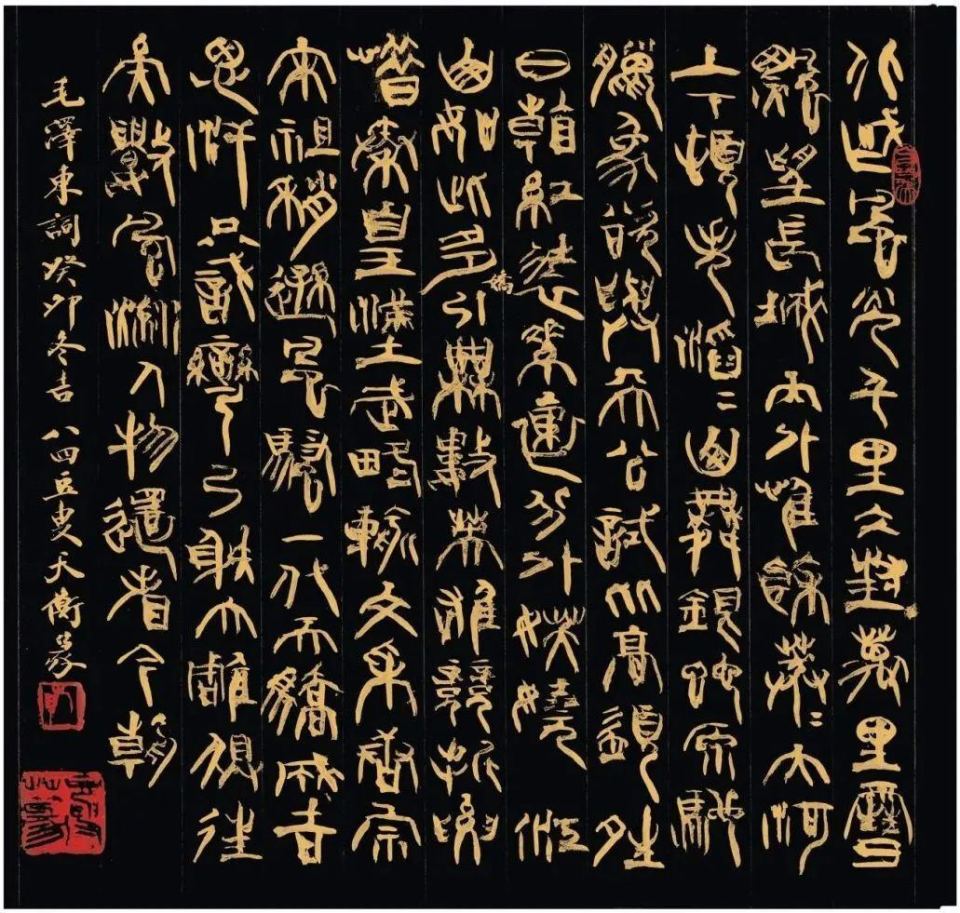 北國風光千里冰封萬里雪
飄望長城內外惟餘莽〻大河
上下頓失滔〻山舞銀蛇原馳
蠟象欲與天公試比高須晴
日看紅裝素裹分外妖嬈江
山如此多嬌引無數英雄競折腰
惜秦皇漢武略輸文采唐宗
宋祖稍遜風騷一代天驕成吉
思汗只識彎弓射大雕俱往
矣數風流人物還看今朝
毛澤東詞癸卯冬吉 八四豆叟天衡篆